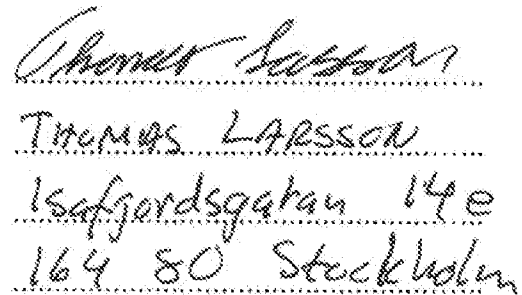 Thomas Larsson
THOMAS LARSSON
Isafjordsgatan 14e
164 80 Stockholm